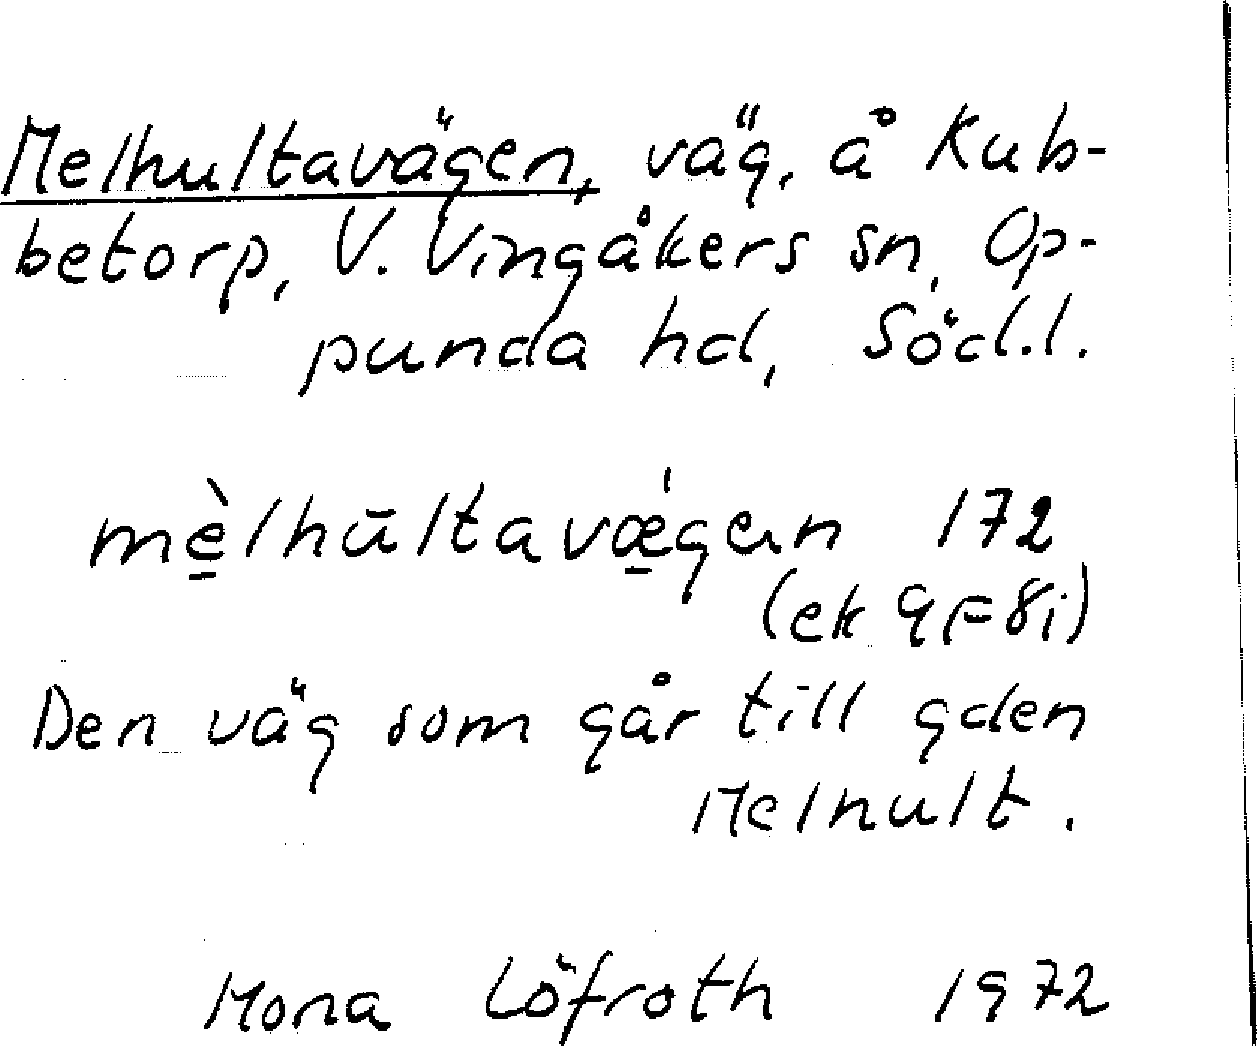 Melhultavägen, väg, å Kub-
betorp, V. Vingåkers sn, Op-
punda hd, Söd.l.
mè̱lhūltavǽ̱gən 172
(ek 9F8i)
Den väg som går till gden
Melhult.
Mona Löfroth 1972